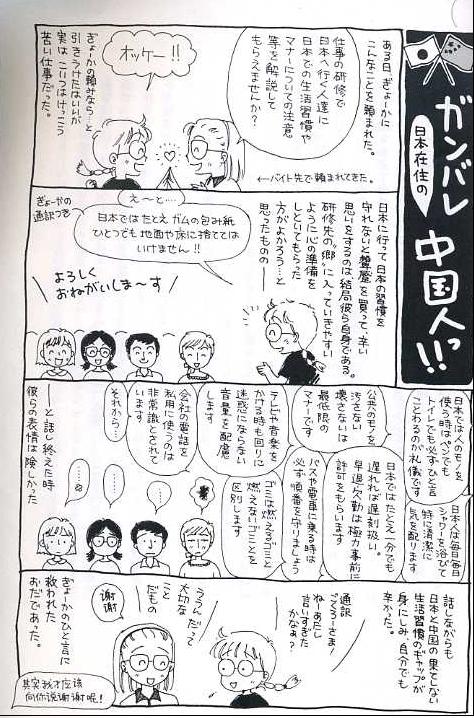 ガンバレ
日本在住の
中国人っ!!
ある日、ぎょーかに
こんなことを頼まれた。
仕事の研修で
日本へ行く人達に
日本での生活習慣や
マナーについての注意
等を解説して
もらえませんか?
←バイト先で頼まれてきた。
オッケー!!
ぎょーかの頼みなら…と
引きうけたはいいが
実は こいつはけっこう
苦い仕事だった。
日本に行って日本の習慣を
守れないと顰蹙を買って、辛い
思いをするのは、結局彼ら自身である。
研修先の“郷”に入っていきやすい
ように心の準備を
しといてもらった
方がよかろう…と
思ったものの――
え〜と…。
日本ではたとえ ガムの包み紙
ひとつでも 地面や床に捨てては
いけません!!
ぎょーかの
通訳つき
よろしく
おねがいしま〜す
日本では人のモノを
使う時はペンでも
トイレでも必ずひと言
ことわるのが礼儀です
日本人は毎日毎日
シャワーを浴びて
特に清潔に
気を配ります
公共のモノを
汚さない
壊さないは
最低限の
マナーです
日本ではたとえ一分でも
遅れれば遅刻扱い。
早退・欠勤は極力事前に
許可をもらいます
テレビや音楽を
かける時も回りに
迷惑にならない
音量を配慮
します
バスや電車に乗る時は
必ず順番を守りましょう
会社の電話を
私用に使うのは
非常識とされて
います
ゴミは燃えるゴミと
燃えないゴミとを
区別します
それから…
――と話し終えた時
彼らの表情は険しかった
話しながらも
日本と中国の果てしない
生活習慣のギャップが
身にしみ、自分でも
辛かった。
通訳
ごくろーさま!
ねーあたし
言いすぎた
かなぁ?
ううん だって
大切な
こと
だもの
谢谢
ぎょーかのひと言に
救われた
おだであった。
其实我才应该
向你说谢谢呢!